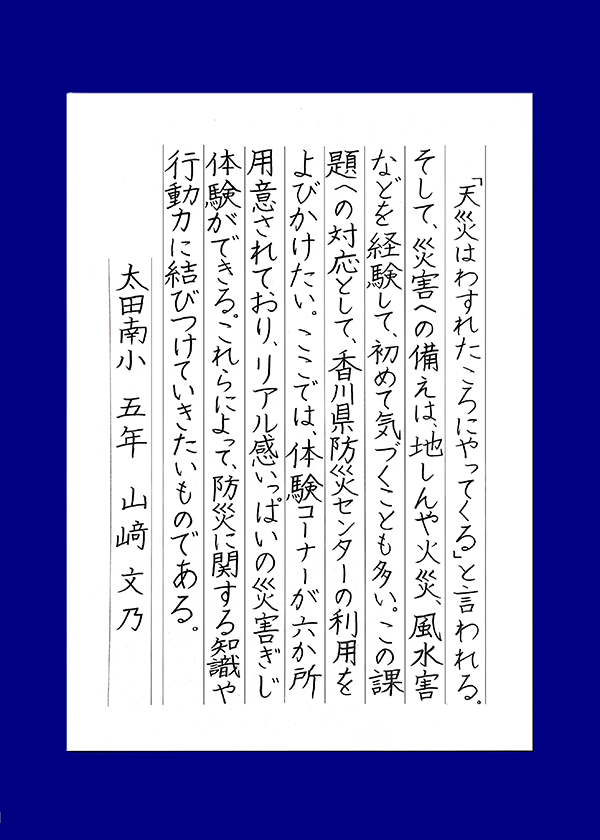 「天災はわすれたころにやってくる」と言われる。
そして、災害への備えは、地しんや火災、風水害
などを経験して、初めて気づくことも多い。この課
題への対応として、香川県防災センターの利用を
よびかけたい。ここでは、体験コーナーが六か所
用意されており、リアル感いっぱいの災害ぎじ
体験ができる。これらによって、防災に関する知識や
行動力に結びつけていきたいものである。
太田南小 五年 山﨑文乃